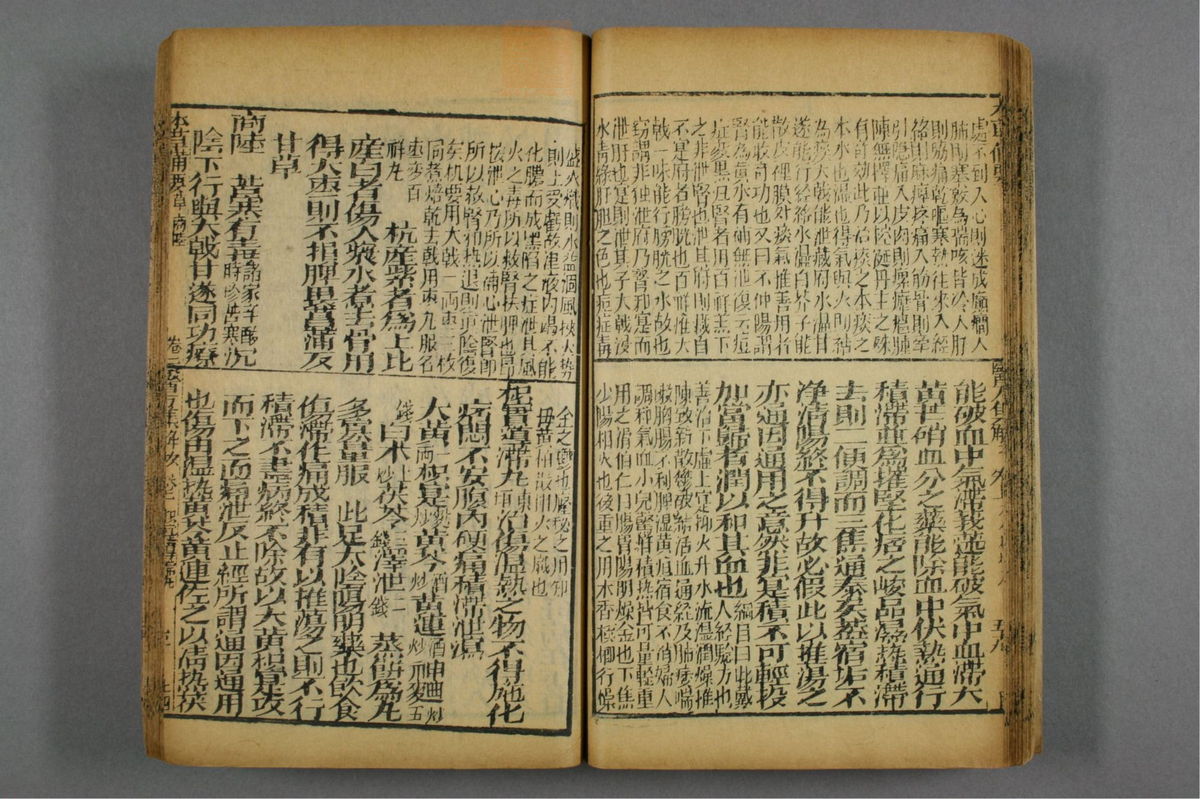 處不到入心則迷成癲癎入
肺則塞竅為喘咳背冷入肝
則脇痛乾嘔寒熱往來入經
絡則麻痺疼痛入筋骨則牽
引隱痛入皮肉則瘰癧癰腫
陳無擇並以控涎丹主之殊
有奇効此乃治痰之本痰之
本水也濕也得氣與火則結
為痰大戟能泄藏府水濕甘
遂能行經絡水濕白芥子能
散皮裡膜外痰氣惟善用者
能收奇功也又曰仲陽謂
腎為真水有補無泄復云痘
症變黑歸腎者用百祥羔下
之非泄腎也泄其府則臟自
不實府者膀胱也百祥惟大
戟一味能行膀胱之水故也
竊謂非独泄府乃腎邪實而
泄肝也實則泄其子大戟浸
水青綠肝胆之色也痘症毒
能破血中氣滯莪茂能破氣中血滯大
黃芒硝血分之藥能除血中伏熱通行
積滯並為摧堅化痞之峻品濕熱積滯
去則二便調而三焦通泰矣蓋宿垢不
淨清陽終不得升故必假此以推盪之
亦通因通用之意然非實積不可輕投
加當歸者潤以和其血也 綱目曰此戴
人經驗方也
善治下虛上宜抑火升水流濕潤燥推
陳致新散鬱破結活血通經及肺痿喘
嗽胸膈不利脾濕黃疸宿食不消婦人
調和氣血小兒驚疳積熱皆可量輕重
用之滑伯仁曰腸胃陽明燥金也下焦
少陽相火也後重之用木香檳榔行燥
盛火熾則水益涸風挾火勢
則上受虧故津液內竭不能
化膿而成黑陷之症泄其風
火之毒所以救腎扶脾也昂
按泄心乃所以補心泄腎即
所以救腎邪熱退則真陰復
矣机要用大戟一兩棗三枚
同煮焙乾去戟用棗丸服名
棗變百
祥丸 杭產紫者為上北
產白者傷人漿水煮去骨用
得大棗則不損脾畏菖蒲反
甘草
商陸 有毒諸家辛酸時珍苦寒沉
陰下行與大戟甘遂同功療
金之鬱也癃秘之用知
母黃柏散相火之熾也
枳實導滯丸 東垣 治傷濕熱之物不得施化
痞悶不安腹內硬痛積滯泄瀉
大黃一兩枳實麩炒黃芩酒炒黃連酒炒神曲炒各五
錢白朮土炒茯苓三錢澤泄二錢 蒸餅為丸
多寡量服 此足太陰陽明藥也飲食
傷滯作痛成積非有以推蕩之則不行
積滯不盡病終不除故以大黃枳實攻
而下之而痛泄反止經所謂通因通用
也傷由溫热黃芩黃連佐之以清热茯